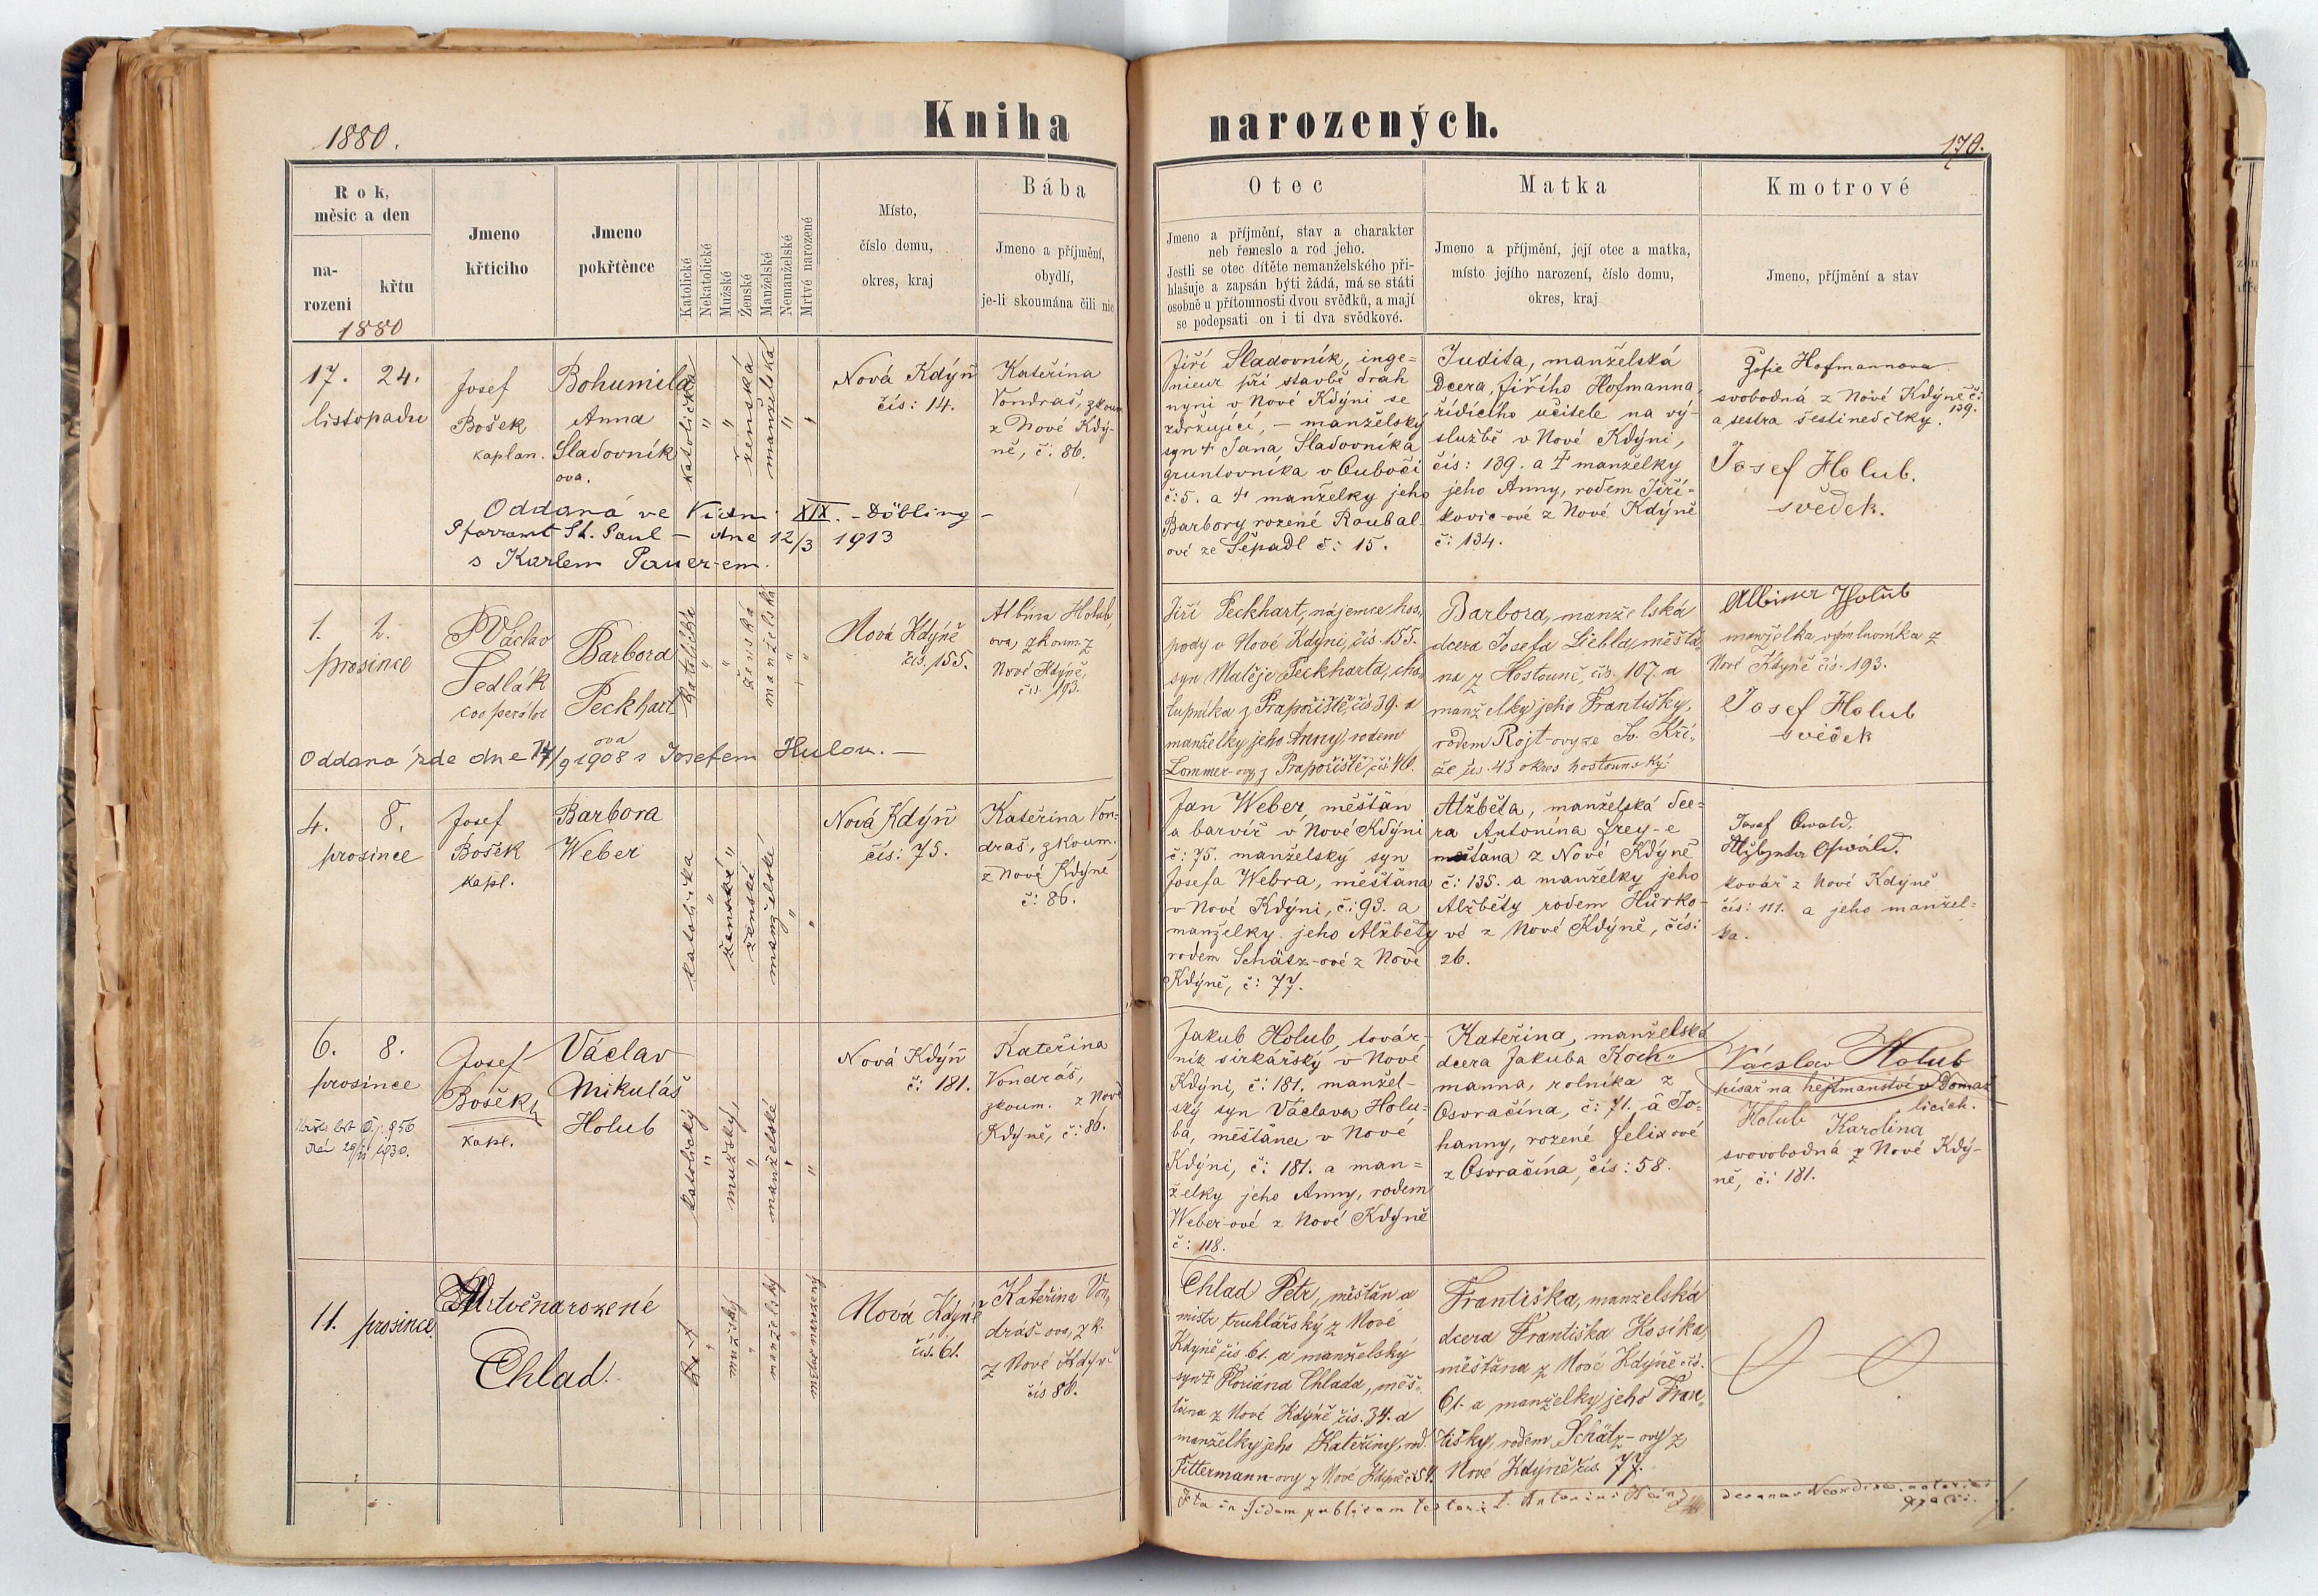 1880.
Kniha narozených.
170.
Rok,
měsíc a den
na-
rozeni
křtu
1880
Jmeno
křticího
Jmeno
pokřtěnce
Katolické
Nekatolické
Mužské
Ženské
Manželské
Nemanželské
Mrtvé narozené
Místo,
číslo domu,
okres, kraj
Bába
Jmeno a příjmění,
obydlí,
je-li skoumána čili nic
Otec
Jmeno a příjmění, stav a charakter
neb řemeslo a rod jeho.
Jestli se otec dítěte nemanželského při-
hlašuje a zapsán býti žádá, má se státi
osobně u přítomnosti dvou svědků, a mají
se podepsati on i ti dva svědkové.
Matka
Jmeno a příjmění, její otec a matka,
místo jejího narození, číslo domu,
okres, kraj
Kmotrové
Jmeno, příjmění a stav
17. 24.
listopadu
Josef
Bošek
kaplan.
Bohumila
Anna
Sladovník
ova.
katolická
"
"
ženská
manželská
"
"
Nová Kdýň
čís: 14.
Kateřina
Vondraš, zkoum.
z Nové Kdý-
ně, č: 86.
Jiří Sladovník, inge=
nieur při stavbě drah
nyní v Nové Kdýni se
zdržující, – manželský
syn † Jana Sladovníka
gruntovníka v Ouboči
č: 5. a † manželky jeho
Barbory rozené Roubal-
ové ze Sepadl č: 15.
Judita, manželská
Dcera, Jiřího Hofmanna,
řídícího učitele na vý-
službě v Nové Kdýni,
čís: 139. a † manželky
jeho Anny, rodem Jiří-
kovic-ové z Nové Kdýně
č: 134.
Žofie Hofmannova
svobodná z Nové Kdýně č:
139.
a sestra šestinedělky.
Josef Holub.
svědek.
Oddaná ve Vídni XIX. – Döbling –
Pfarramt St. Paul – dne 12/3 1913
s Karlem Pauer-em.
1. 2.
prosince
Václav
Sedlák
cooperátor
Barbora
Peckhart
ova
katolická
"
"
ženská
manželská
"
"
Nová Kdýně
čís. 155.
Albína Holub,
ova, zkoum. z
Nové Kdýně,
čís. 193.
Jiří Peckhart, nájemce hos,
pody v Nové Kdýni, čís. 155.
syn Matěje Peckharta, cha,
lupníka z Prapořiště, čís 39. a
manželky jeho Anny, rodem
Lommer-ovy z Prapořiště, čís. 40.
Barbora, manželská
dcera Josefa Liebla, měšťa,
na z Hostouně, čís. 107. a
manželky jeho Františky,
rodem Rojt-ovy ze Sv. Kří,
že čís. 45 okres hostounský.
Albina Holub
manželka výměnníka z
Nové Kdýně čís. 193.
Josef Holub
svědek
Oddána zde dne 14/9 1908 s Josefem Hulou. –
4. 8.
prosince
Josef
Bošek
kapl.
Barbora
Weber
katolická
"
ženské
"
ženské
manželské
"
"
Nová Kdýň
čís: 75.
Kateřina Von=
draš, zkoum.
z Nové Kdýně
č: 86.
Jan Weber, měšťan
a barvíř v Nové Kdýni
č: 75. manželský syn
Josefa Webra, měšťana
v Nové Kdýni, č: 93. a
manželky jeho Alžběty
rodem Schätz-ové z Nové
Kdýně, č: 77.
Alžběta, manželská dce=
ra Antonína Frey-e
měšťana z Nové Kdýně
č: 135. a manželky jeho
Alžběty rodem Hůrko-
vé z Nové Kdýně, čís:
26.
Josef Oswald,
Alžbjeta Oswald.
kovář z Nové Kdýně
čís: 111. a jeho manžel=
ka.
6. 8.
prosince
Josef
Bošek
kapl.
Václav
Mikuláš
Holub
katolický
"
mužský,
"
manželské
"
Nová Kdýň
č: 181.
Kateřina
Vondráš,
zkoum. z Nové
Kdýně, č: 86.
Jakub Holub, továr-
ník sirkářský v Nové
Kdýni, č: 181. manžel-
ský syn Václava Holu-
ba, měšťana v Nové
Kdýni, č: 181. a man=
želky jeho Anny, rodem
Weber-ové z Nové Kdýně
č: 118.
Kateřina, manželská
dcera Jakuba Koch"
manna, rolníka z
Osvračína, č: 71. a Jo=
hanny, rozené Felixové
z Osvračína, čís: 58.
Václav Holub
písař na hejtmanství v Domaž
licích.
Holub Karolina
svovobodná z Nové Kdý-
ně, č: 181.
11. prosince
Mrtvěnarozené
Chlad.
"
mužský
"
manželský
mrtvě narozený
Nová Kdýně
čís. 61.
Kateřina Von,
dráš-ova, z k.
z Nové Kdýně
čís 86.
Chlad Petr, měšťan a
mistr truhlářský z Nové
Kdýně, čís 61. a manželský
syn † Floriána Chlada, měš-
ťana z Nové Kdýně čís. 34. a
manželky jeho Kateřiny, rod.
Fittermann-ovy z Nové Kdýně č. 54.
Františka, manželská
dcera Františka Kosíka,
měšťana z Nové Kdýně čís.
61. a manželky jeho Fran,
tišky, rodem Schätz-ovy z
Nové Kdýně čís. 77.
Ita in fidem publicam testor: